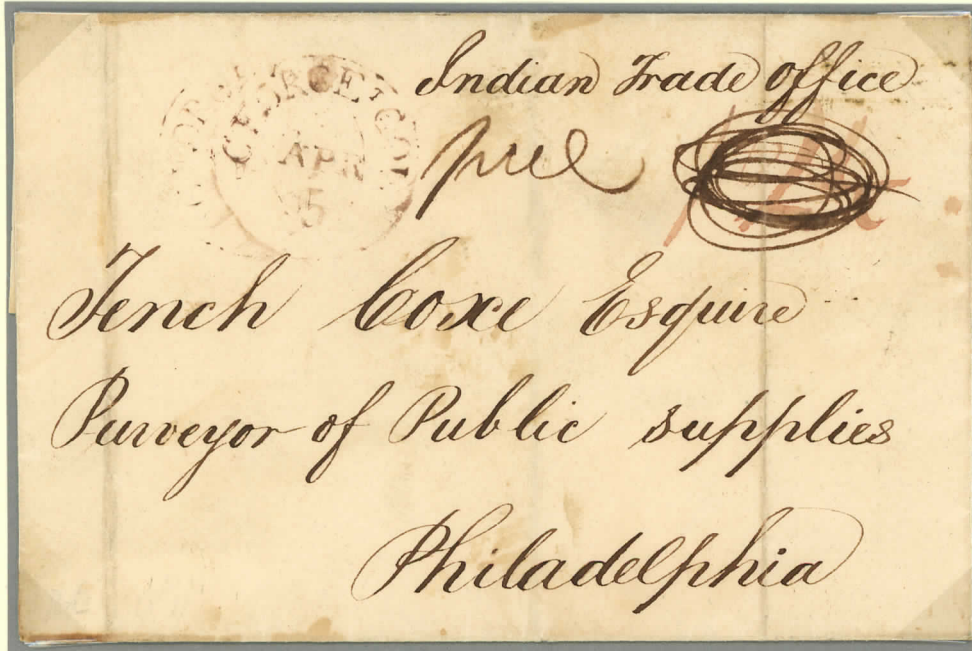 Indian Trade office
GEORGETOW
APR
5
free
Tench Coxe Esquire
Purveyor of Public supplies
Philadelphia